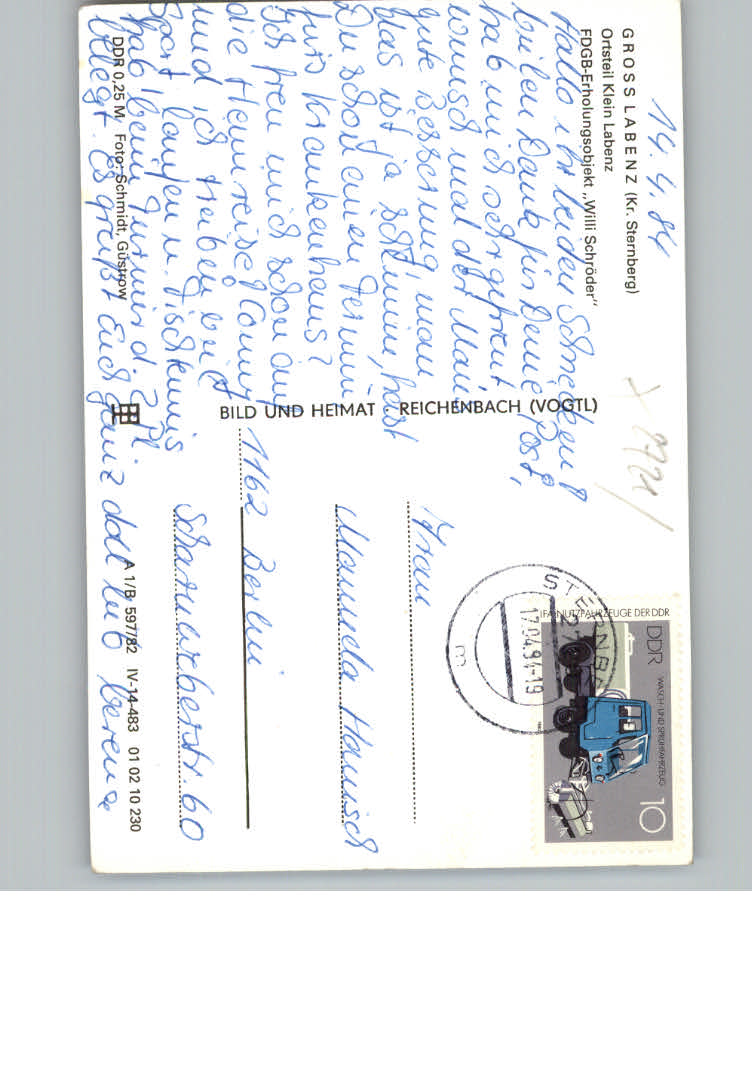 GROSS LABENZ (Kr. Sternberg)
Ortsteil Klein Labenz
FDGB-Erholungsobjekt „Willi Schröder"
14.4.84
Hallo ihr beiden Schnecken!
vielen Dank für Deine Post,
hab mich sehr gefreut
wunsch und der Mani
gute Besserung, man
das ist ja schlimm, hast
Du schon einen Termin
fürs Krankenhaus?
Ich freu mich schon auf
die Heimreise, Conny
und ich treiben viel
Sport, laufen u. Tischtennis
hab beim Turnier d. 2. Pl.
belegt. Es grüßt Euch ganz doll
DDR 0,25 M Foto: Schmidt, Güstrow
BILD UND HEIMAT · REICHENBACH (VOGTL)
A 1/B 597/82 IV-14-483 01 02 10 230
Frau
Manuela Hanisch
1162 Berlin
Scharnweberstr. 60
IFA-NUTZFAHRZEUGE DER DDR
DDR
WASCH- UND SPRÜHFAHRZEUG
10
STERNBERG
27
17.04.84-19
m